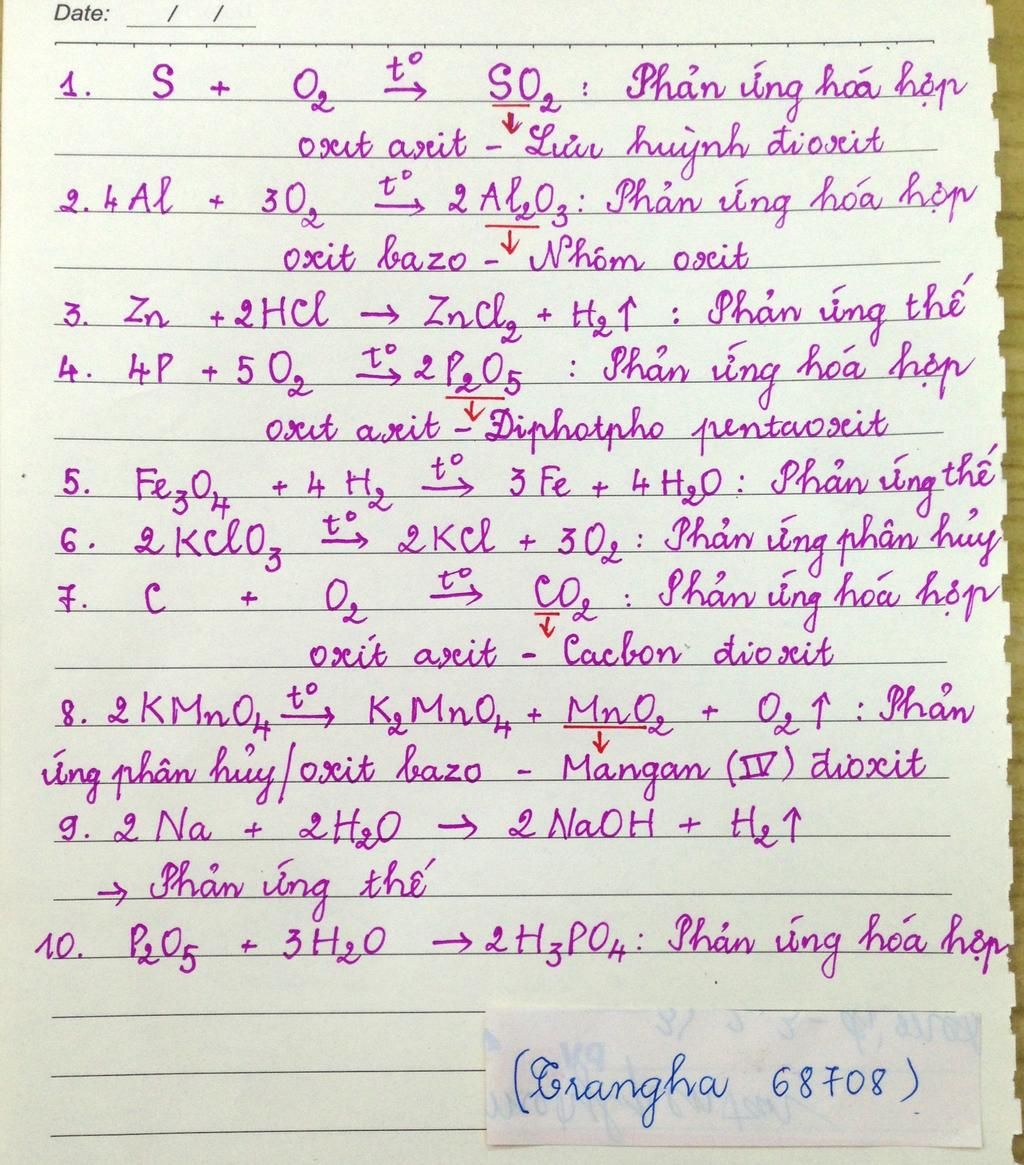 Date: / /
1. S + O₂ t° → SO₂ : Phản ứng hoá hợp
oxit axit - Lưu huỳnh đioxit
2. 4Al + 3O₂ t° → 2Al₂O₃ : Phản ứng hóa hợp
oxit bazo - Nhôm oxit
3. Zn + 2HCl → ZnCl₂ + H₂↑ : Phản ứng thế
4. 4P + 5O₂ t° → 2P₂O₅ : Phản ứng hóa hợp
oxit axit - Diphotpho pentaoxit
5. Fe₃O₄ + 4H₂ t° → 3Fe + 4H₂O : Phản ứng thế
6. 2KClO₃ t° → 2KCl + 3O₂ : Phản ứng phân hủy
7. C + O₂ t° → CO₂ : Phản ứng hóa hợp
oxít axit - Cacbon đioxit
8. 2KMnO₄ t° → K₂MnO₄ + MnO₂ + O₂↑ : Phản
ứng phân hủy/oxit bazo - Mangan (IV) đioxit
9. 2Na + 2H₂O → 2NaOH + H₂↑
→ Phản ứng thế
10. P₂O₅ + 3H₂O → 2H₃PO₄ : Phản ứng hóa hợp
(Trangha 68708)